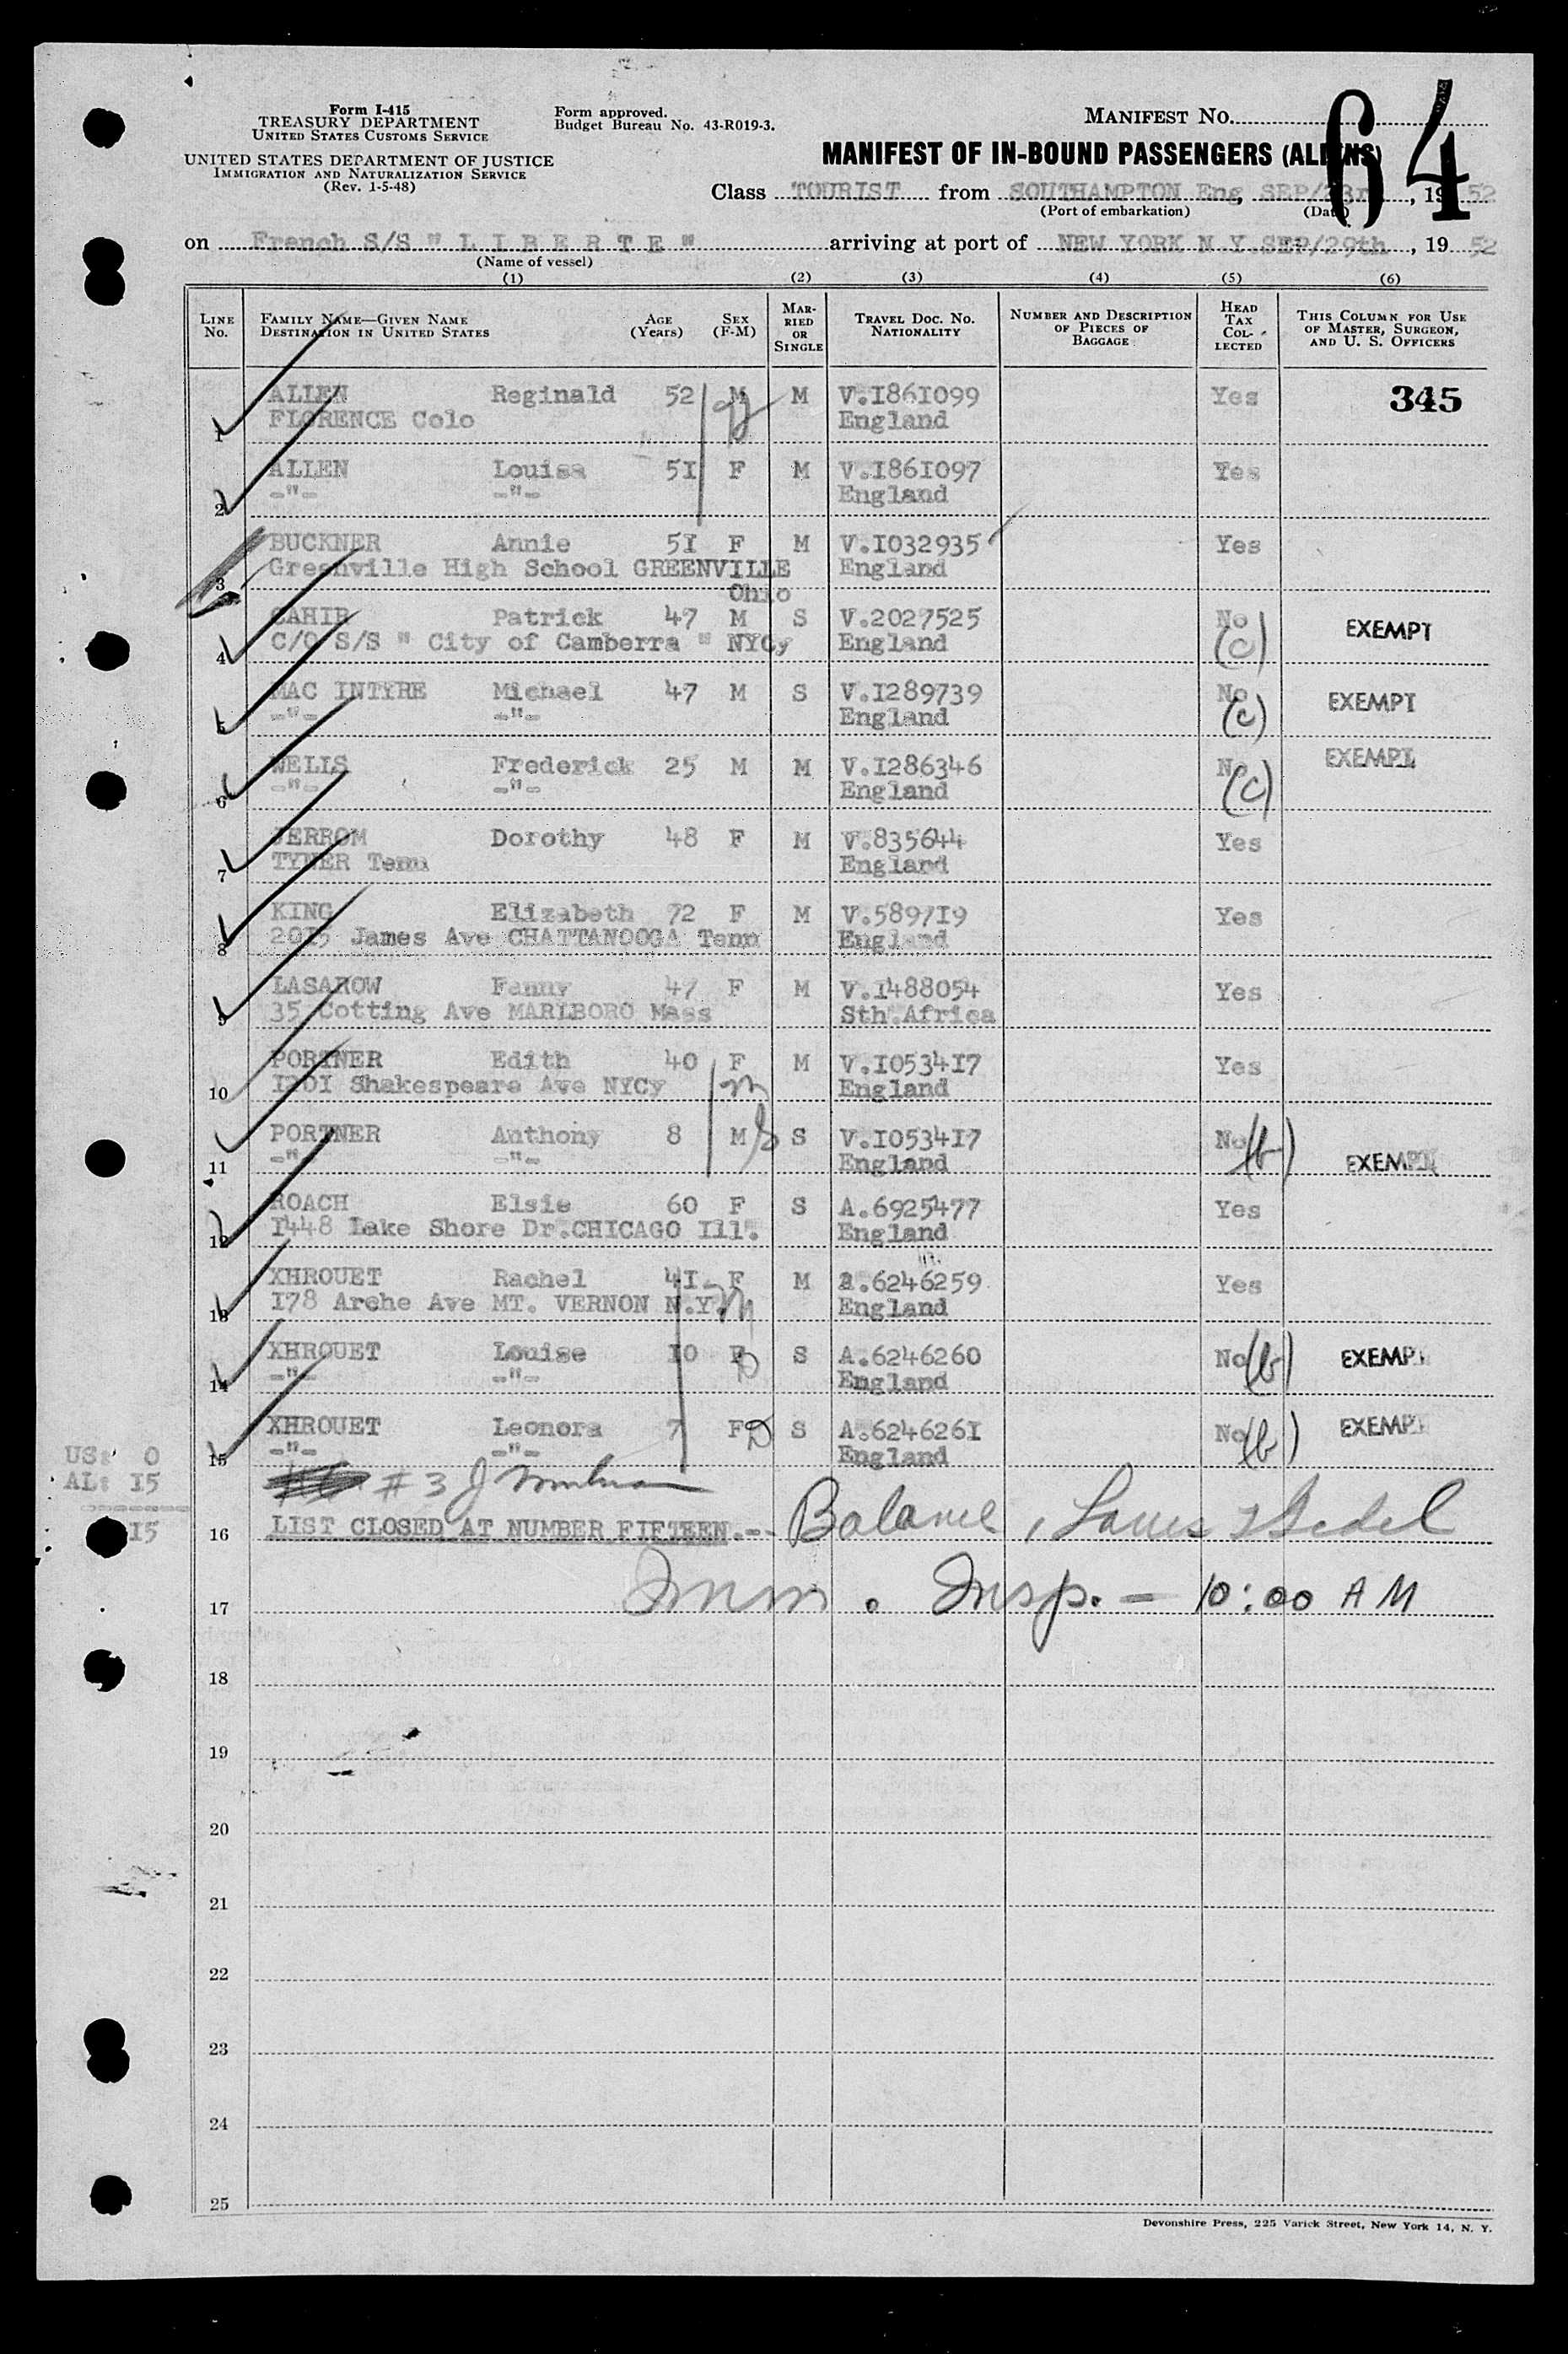 Form I-415
TREASURY DEPARTMENT
UNITED STATES CUSTOMS SERVICE
UNITED STATES DEPARTMENT OF JUSTICE
IMMIGRATION AND NATURALIZATION SERVICE
(Rev. 1-5-48)
Form approved.
Budget Bureau No. 43-R019-3.
MANIFEST No.
64
MANIFEST OF IN-BOUND PASSENGERS (ALIENS)
Class TOURIST from SOUTHAMPTON Eng, SEP/23rd, 1952
(Port of embarkation) (Date)
on French S/S " L I B E R T E " arriving at port of NEW YORK N.Y. SEP/29th, 1952
(Name of vessel)
(1) (2) (3) (4) (5) (6)
LINE No. FAMILY NAME—GIVEN NAME DESTINATION IN UNITED STATES AGE (Years) SEX (F-M) MARRIED OR SINGLE TRAVEL DOC. No. NATIONALITY NUMBER AND DESCRIPTION OF PIECES OF BAGGAGE HEAD TAX COLLECTED THIS COLUMN FOR USE OF MASTER, SURGEON, AND U. S. OFFICERS
ALLEN Reginald 52 M M V.I861099 Yes 345
1 FLORENCE Colo England
ALLEN Louisa 5I F M V.I861097 Yes
2 -"- -"- England
BUCKNER Annie 5I F M V.I032935 Yes
3 Greenville High School GREENVILLE England
Ohio
CAHIR Patrick 47 M S V.2027525 No (c) EXEMPT
4 C/O S/S " City of Camberra " NYCy England
MAC INTYRE Michael 47 M S V.I289739 No (c) EXEMPT
5 -"- -"- England
WELLS Frederick 25 M M V.I286346 No (c) EXEMPT
6 -"- -"- England
JERROM Dorothy 48 F M V.835644 Yes
7 TYNER Tenn England
KING Elizabeth 72 F M V.5897I9 Yes
8 2015 James Ave CHATTANOOGA Tenn England
LASAROW Fanny 47 F M V.I488054 Yes
9 35 Cotting Ave MARLBORO Mass Sth.Africa
PORTNER Edith 40 F M V.I0534I7 Yes
10 I20I Shakespeare Ave NYCy England
PORTNER Anthony 8 M S V.I0534I7 No (b) EXEMPT
11 -"- -"- England
ROACH Elsie 60 F S A.6925477 Yes
12 I448 Lake Shore Dr.CHICAGO Ill. England
XHROUET Rachel 4I F M A.6246259 Yes
13 I78 Arche Ave MT. VERNON N.Y. England
XHROUET Louise I0 F S A.6246260 No (b) EXEMPT
14 -"- -"- England
XHROUET Leonora 7 F S A.624626I No (b) EXEMPT
15 -"- -"- England
US: 0
AL: I5
I5
# 3 J
16 LIST CLOSED AT NUMBER FIFTEEN.-- Balance, Louis
17 Imm. Insp. - 10:00 AM
18
19
20
21
22
23
24
25
Devonshire Press, 225 Varick Street, New York 14, N. Y.